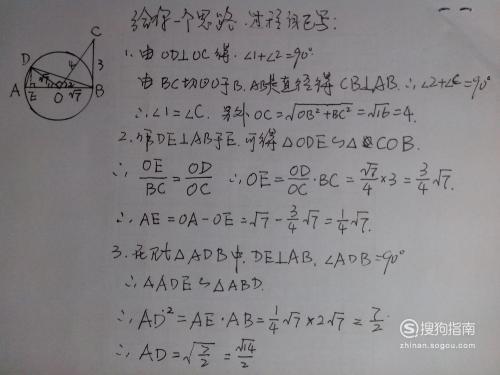 给你一个思路.过程自己写:
1.由OD⊥OC得.∠1+∠2=90°
由BC切⊙O于B.AB是直径得CB⊥AB.∴∠2+∠C=90°
∴∠1=∠C.另外OC=√(OB²+BC²)=√16=4.
2.作DE⊥AB于E.可得△ODE∽△COB.
∴ OE/BC=OD/OC ∴OE=OD/OC·BC=√7/4×3=3/4√7.
∴AE=OA-OE=√7-3/4√7=1/4√7.
3.在Rt△ADB中.DE⊥AB,∠ADB=90°
∴△ADE∽△ABD.
∴AD²=AE·AB=1/4√7×2√7=7/2.
∴AD=√(7/2)=√14/2
C
D
4
3
√7
A
E
O
√7
B
搜狗指南
zhinan.sogou.com